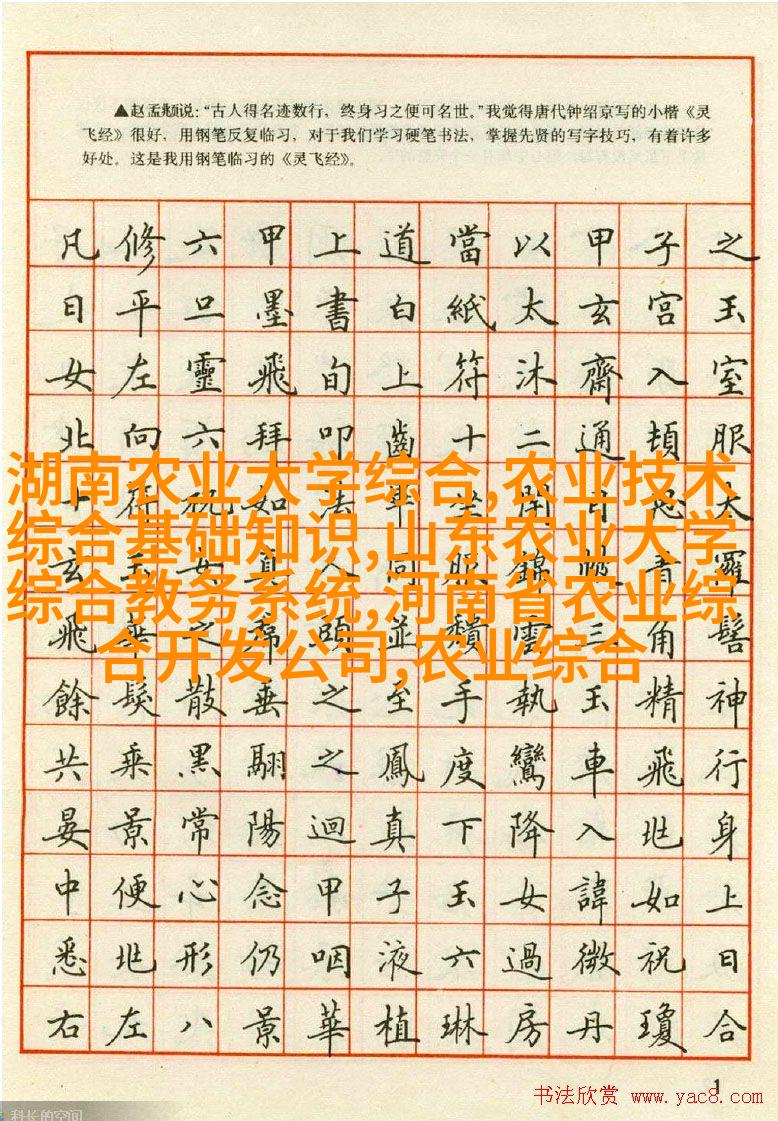 ▲赵孟頫说：“古人得名迹数行，终身习之便可名世。”我觉得唐代钟绍京写的小楷《灵
飞经》很好，用钢笔反复临习，对于我们学习硬笔书法，掌握先贤的写字技巧，有着许多
好处。这是我用钢笔临习的《灵飞经》。
凡修六甲上道當以甲子之
日平旦墨書白紙太玄宮玉
女左靈飛旬上符沐齋入室
北向六拜叩齒十二通頓服
湖南农业大学综合,农业技术
符祝如法坐目思太
综合基础知识,山东农业大学
玄玉女真人同服錦帔青羅
综合教务系统,河南省农业综
飛華之裙頭並頹雲三角髻
合开发公司,农业综合
餘髮散垂之至手執玉精神
共乘黑翮之鳳度鸞車飛行
晏景常陽迴真下降入兆身
中便心念甲子玉女諱如上
悉兆形仍咽液六過微祝日
右左八景華植琳房丹瓊合
1
书法欣赏 www.yac8.com
科长的空间